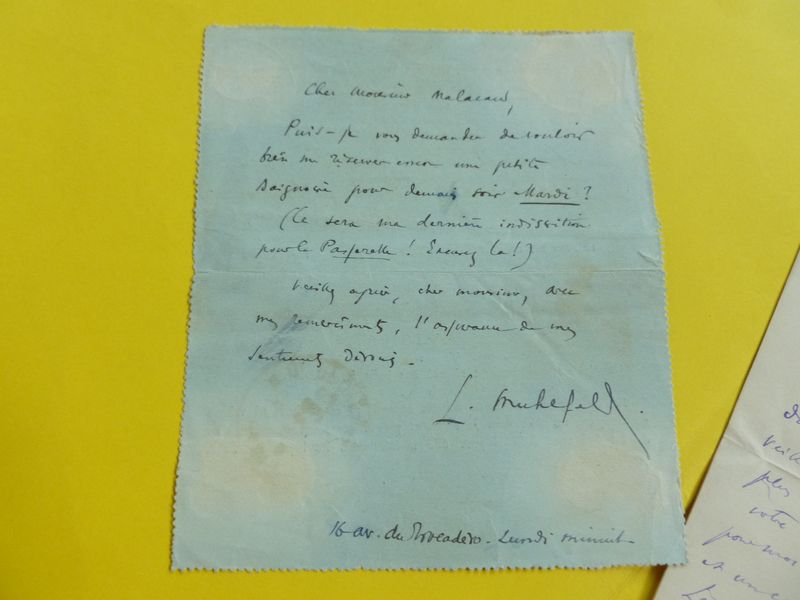 Cher Monsieur Malacard,
Puis-je vous demander de vouloir
bien me réserver encor une petite
Baignoire pour demain soir Mardi ?
(Ce sera ma dernière indiscrétion
pour la Passerelle ! Excusez la !)
Veuillez agréer, cher monsieur, avec
mes remerciments, l'assurance de mes
sentiments dévoués.
L. Muhlfeld.
16 av. du Trocadéro. Lundi minuit
votre
et un